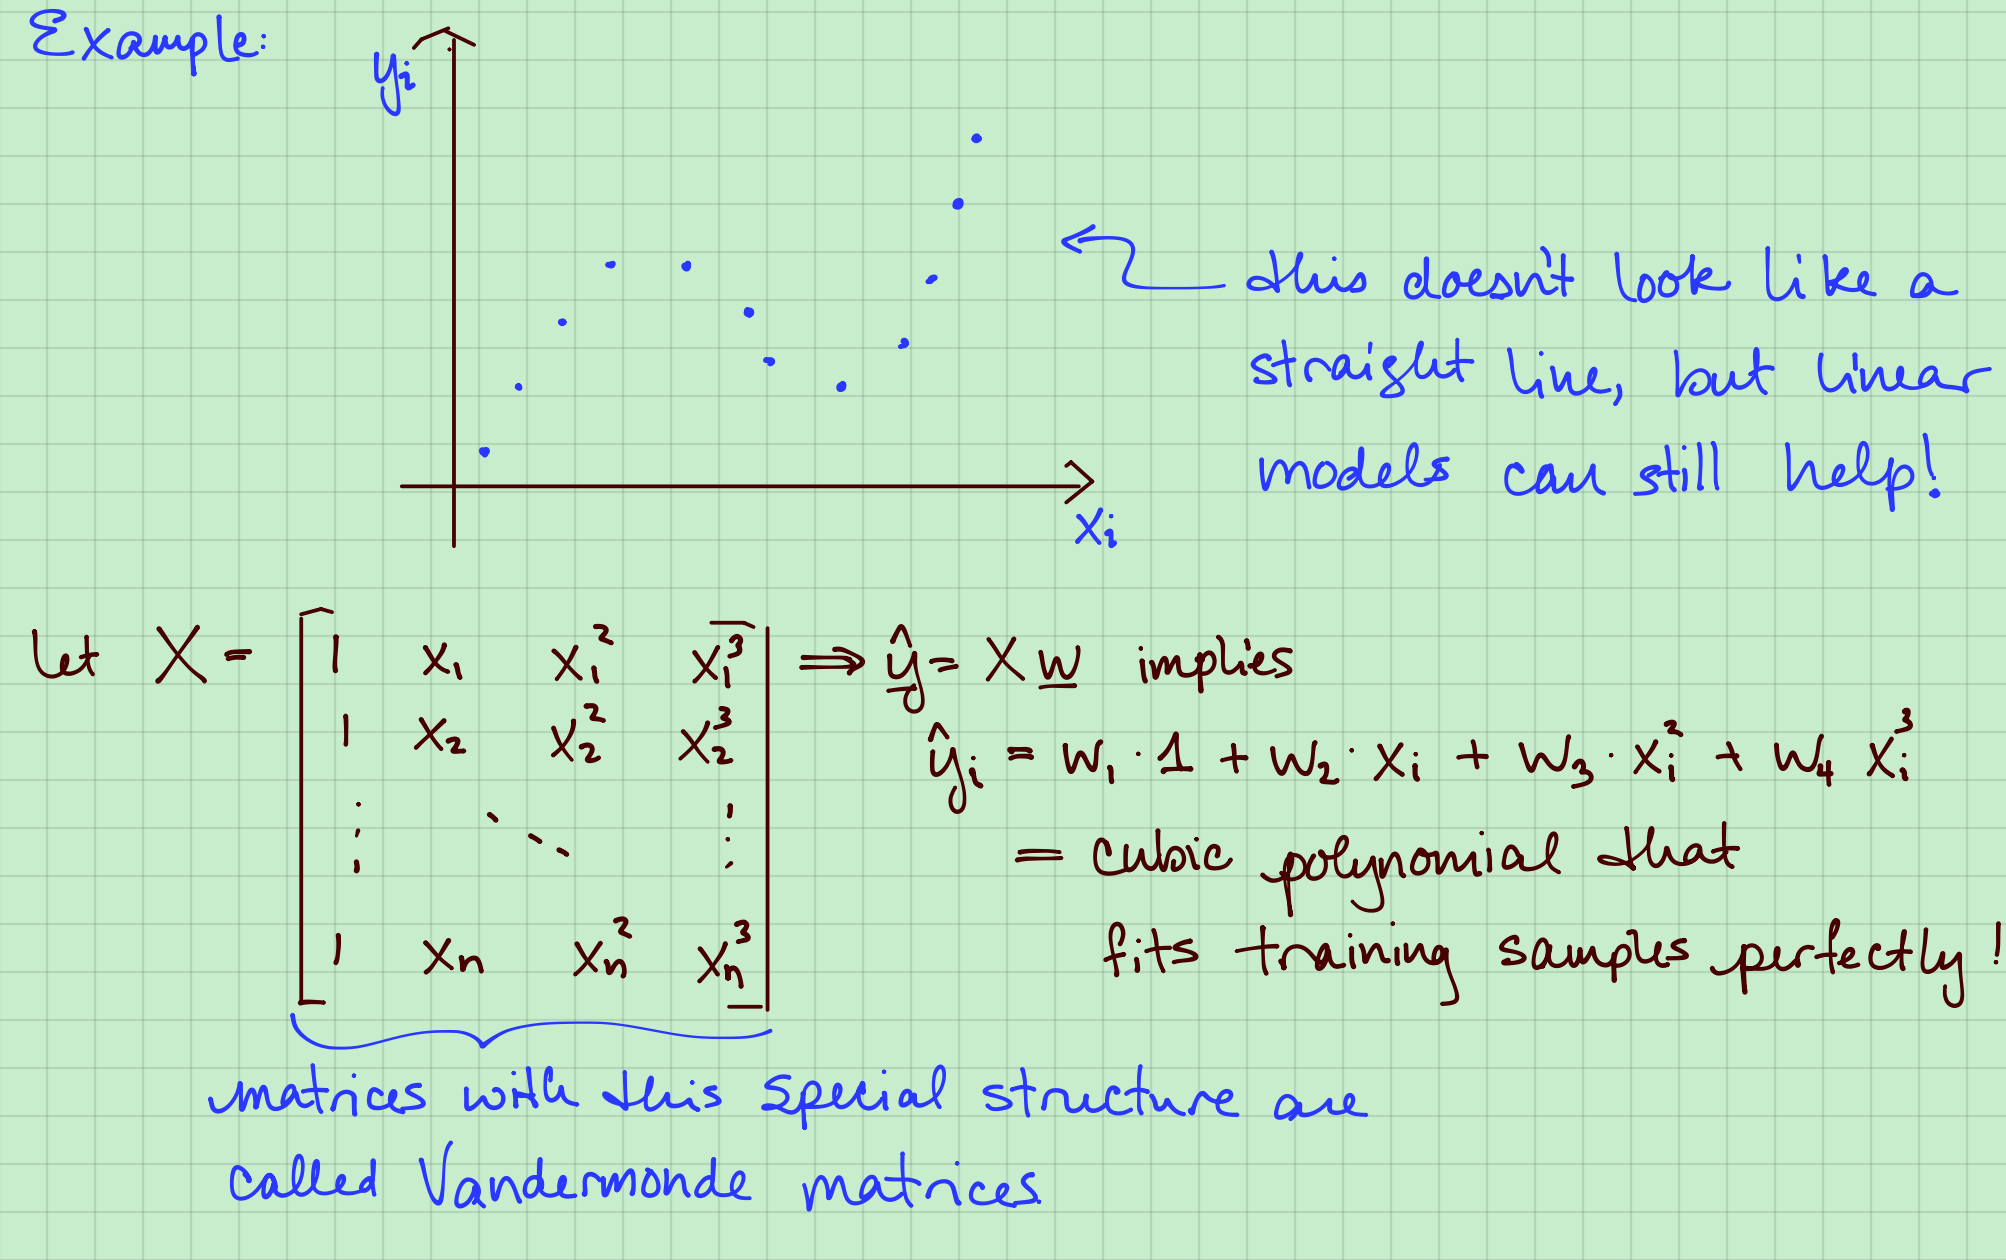 Example:
yᵢ
this doesn't look like a
straight line, but linear
models can still help!
xᵢ
Let X = [ 1 x₁ x₁² x₁³ ⟹ ŷ = X w implies
1 x₂ x₂² x₂³
ŷᵢ = w₁ · 1 + w₂ · xᵢ + w₃ · xᵢ² + w₄ xᵢ³
⋮ ⋱ ⋮
= cubic polynomial that
1 xₙ xₙ² xₙ³ ]
fits training samples perfectly!
matrices with this special structure are
called Vandermonde matrices